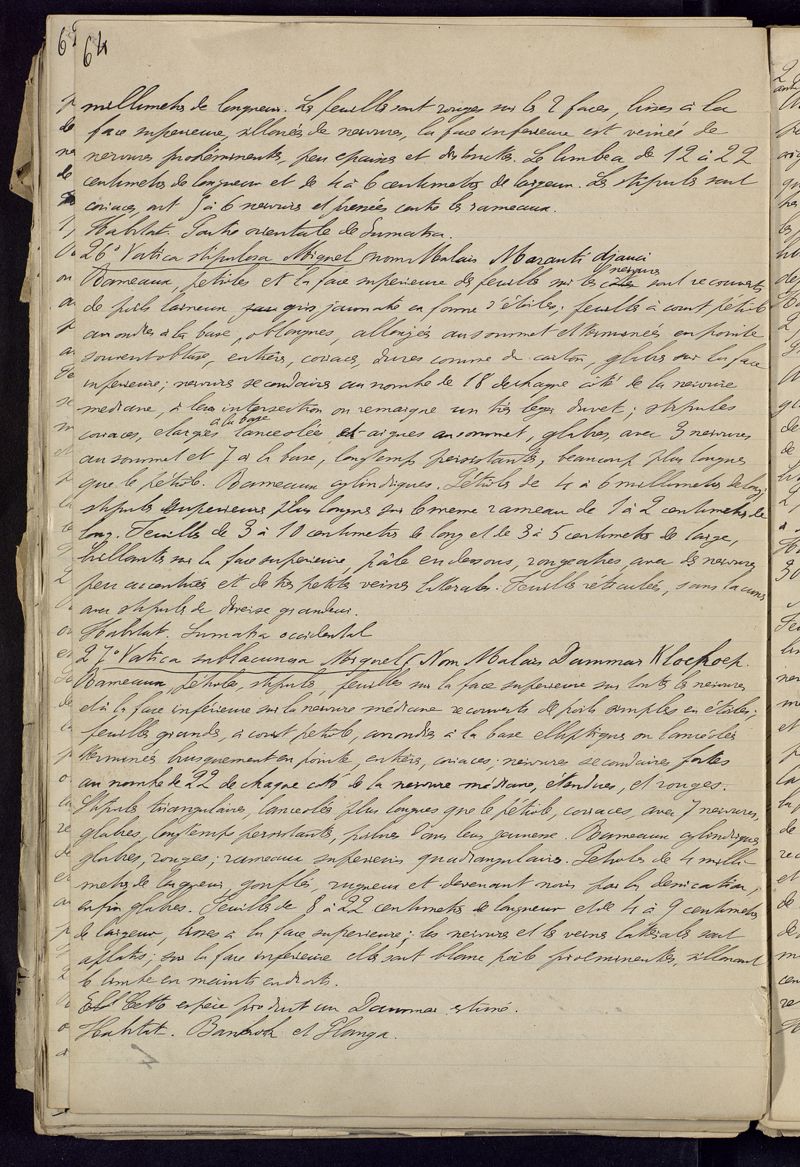 64
millimetres de longueur. Les feuilles sont rouges sur les 2 faces, lisses à la
face superieure, sillonées de nervures, la face inferieure est veinée de
nervures proéminentes, peu epaisses et distinctes. Le limbe a de 12 à 22
centimetres de longueur et de 4 à 6 centimetres de largeur. Les stipules sont
coriaces, ont 5 à 6 nervures et pressées contre les rameaux.
Habitat. Partie orientale de Sumatra.
26° Vatica stipulosa Miquel, nom Malais Maranti djauci
Rameaux, petioles et la face superieure des feuilles sur les nervures sont recouverts
de poils laineux gris jaunatre en forme d'étoiles; feuilles à court pétiole
arrondies à la base, oblongues, allongées au sommet et terminées en pointe
souvent obtuse, entières, coriaces, dures comme du carton, glabres sur la face
inferieure; nervures secondaires au nombre de 18 de chaque côté de la nervure
mediane, à leur intersection on remarque un très leger duvet; stipules
coriaces, elargies à la base lancéolées et aigues au sommet, glabres, avec 3 nervures
au sommet et 7 à la base, longtemps persistants, beaucoup plus longues
que le pétiole. Rameaux cylindriques. Pétioles de 4 à 6 millimetres de long;
stipules superieures plus longues sur le meme rameau de 1 à 2 centimetres de
long. Feuilles de 3 à 10 centimetres de long et de 3 à 5 centimetres de large,
brillantes sur la face superieure, pâle en dessous, rougeatres avec des nervures
peu accentuées et de très petites veines litterales. Feuilles réticulées, sans lacunes
avec stipules de diverse grandeur.
Habitat. Sumatra occidental
27° Vatica sublacunosa Miquel (Nom Malais Dammar Kloekoep.
Rameaux, pétioles, stipules, feuilles sur la face superieure sur toutes les nervures
et à la face inférieure sur la nervure médiane recouverts de poils simples en étoiles;
feuilles grandes, à court petiole, arrondies à la base elliptiques ou lancéolées
terminées brusquement en pointe, entières, coriaces; nervures secondaires fortes
au nombre de 22 de chaque coté de la nervure médiane, étendues, et rouges.
Stipules triangulaires, lancéolées plus longues que le pétiole, coriaces, avec 7 nervures,
glabres, longtemps persistants, poilues dans leur jeunesse. Rameaux cylindriques
glabres, rouges; rameaux superieurs quadrangulaires. Petioles de 4 milli-
metres de longueur, gonflés, rugueux et devenant noirs par la dessication,
enfin glabres. Feuilles de 8 à 22 centimetres de longueur et de 4 à 9 centimetres
de largeur, lisses à la face superieure; les nervures et les veines latérales sont
aplaties; sur la face inferieure elles sont blanc pâle proéminentes, sillonant
le limbe en maints endroits.
Cette espèce produit un Dammar estimé.
Habitat. et